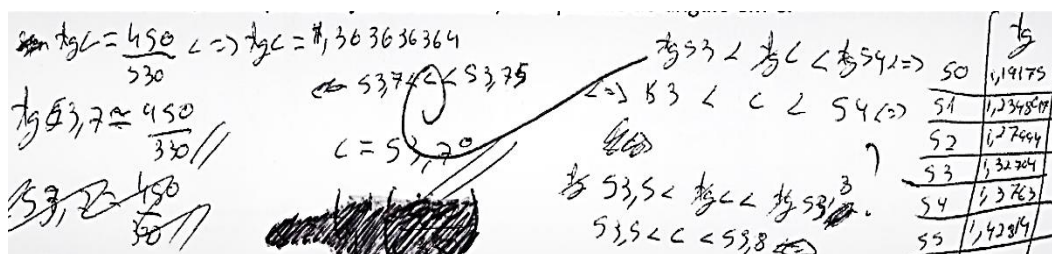 tgc = 450/330 <=> tgc = 1,363636364
tg 53,7 ≈ 450/330 //
53,7 < c < 53,75
c = 53,7°
tg 53 < tg c < tg 54 <=>
<=> 53 < c < 54 <=>
tg 53,5 < tg c < tg 53,8
53,5 < c < 53,8
tg
50 1,19175
51
52 1,27994
53 1,32704
54 1,3763
55 1,42814